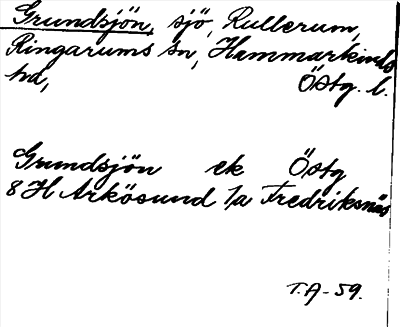 Grundsjön, sjö, Rullerum,
Ringarums sn, Hammarkinds
hd, Östg. l.
Grundsjön ek Östg
8 H Arkösund 1a Fredriksnäs
T.A-59.